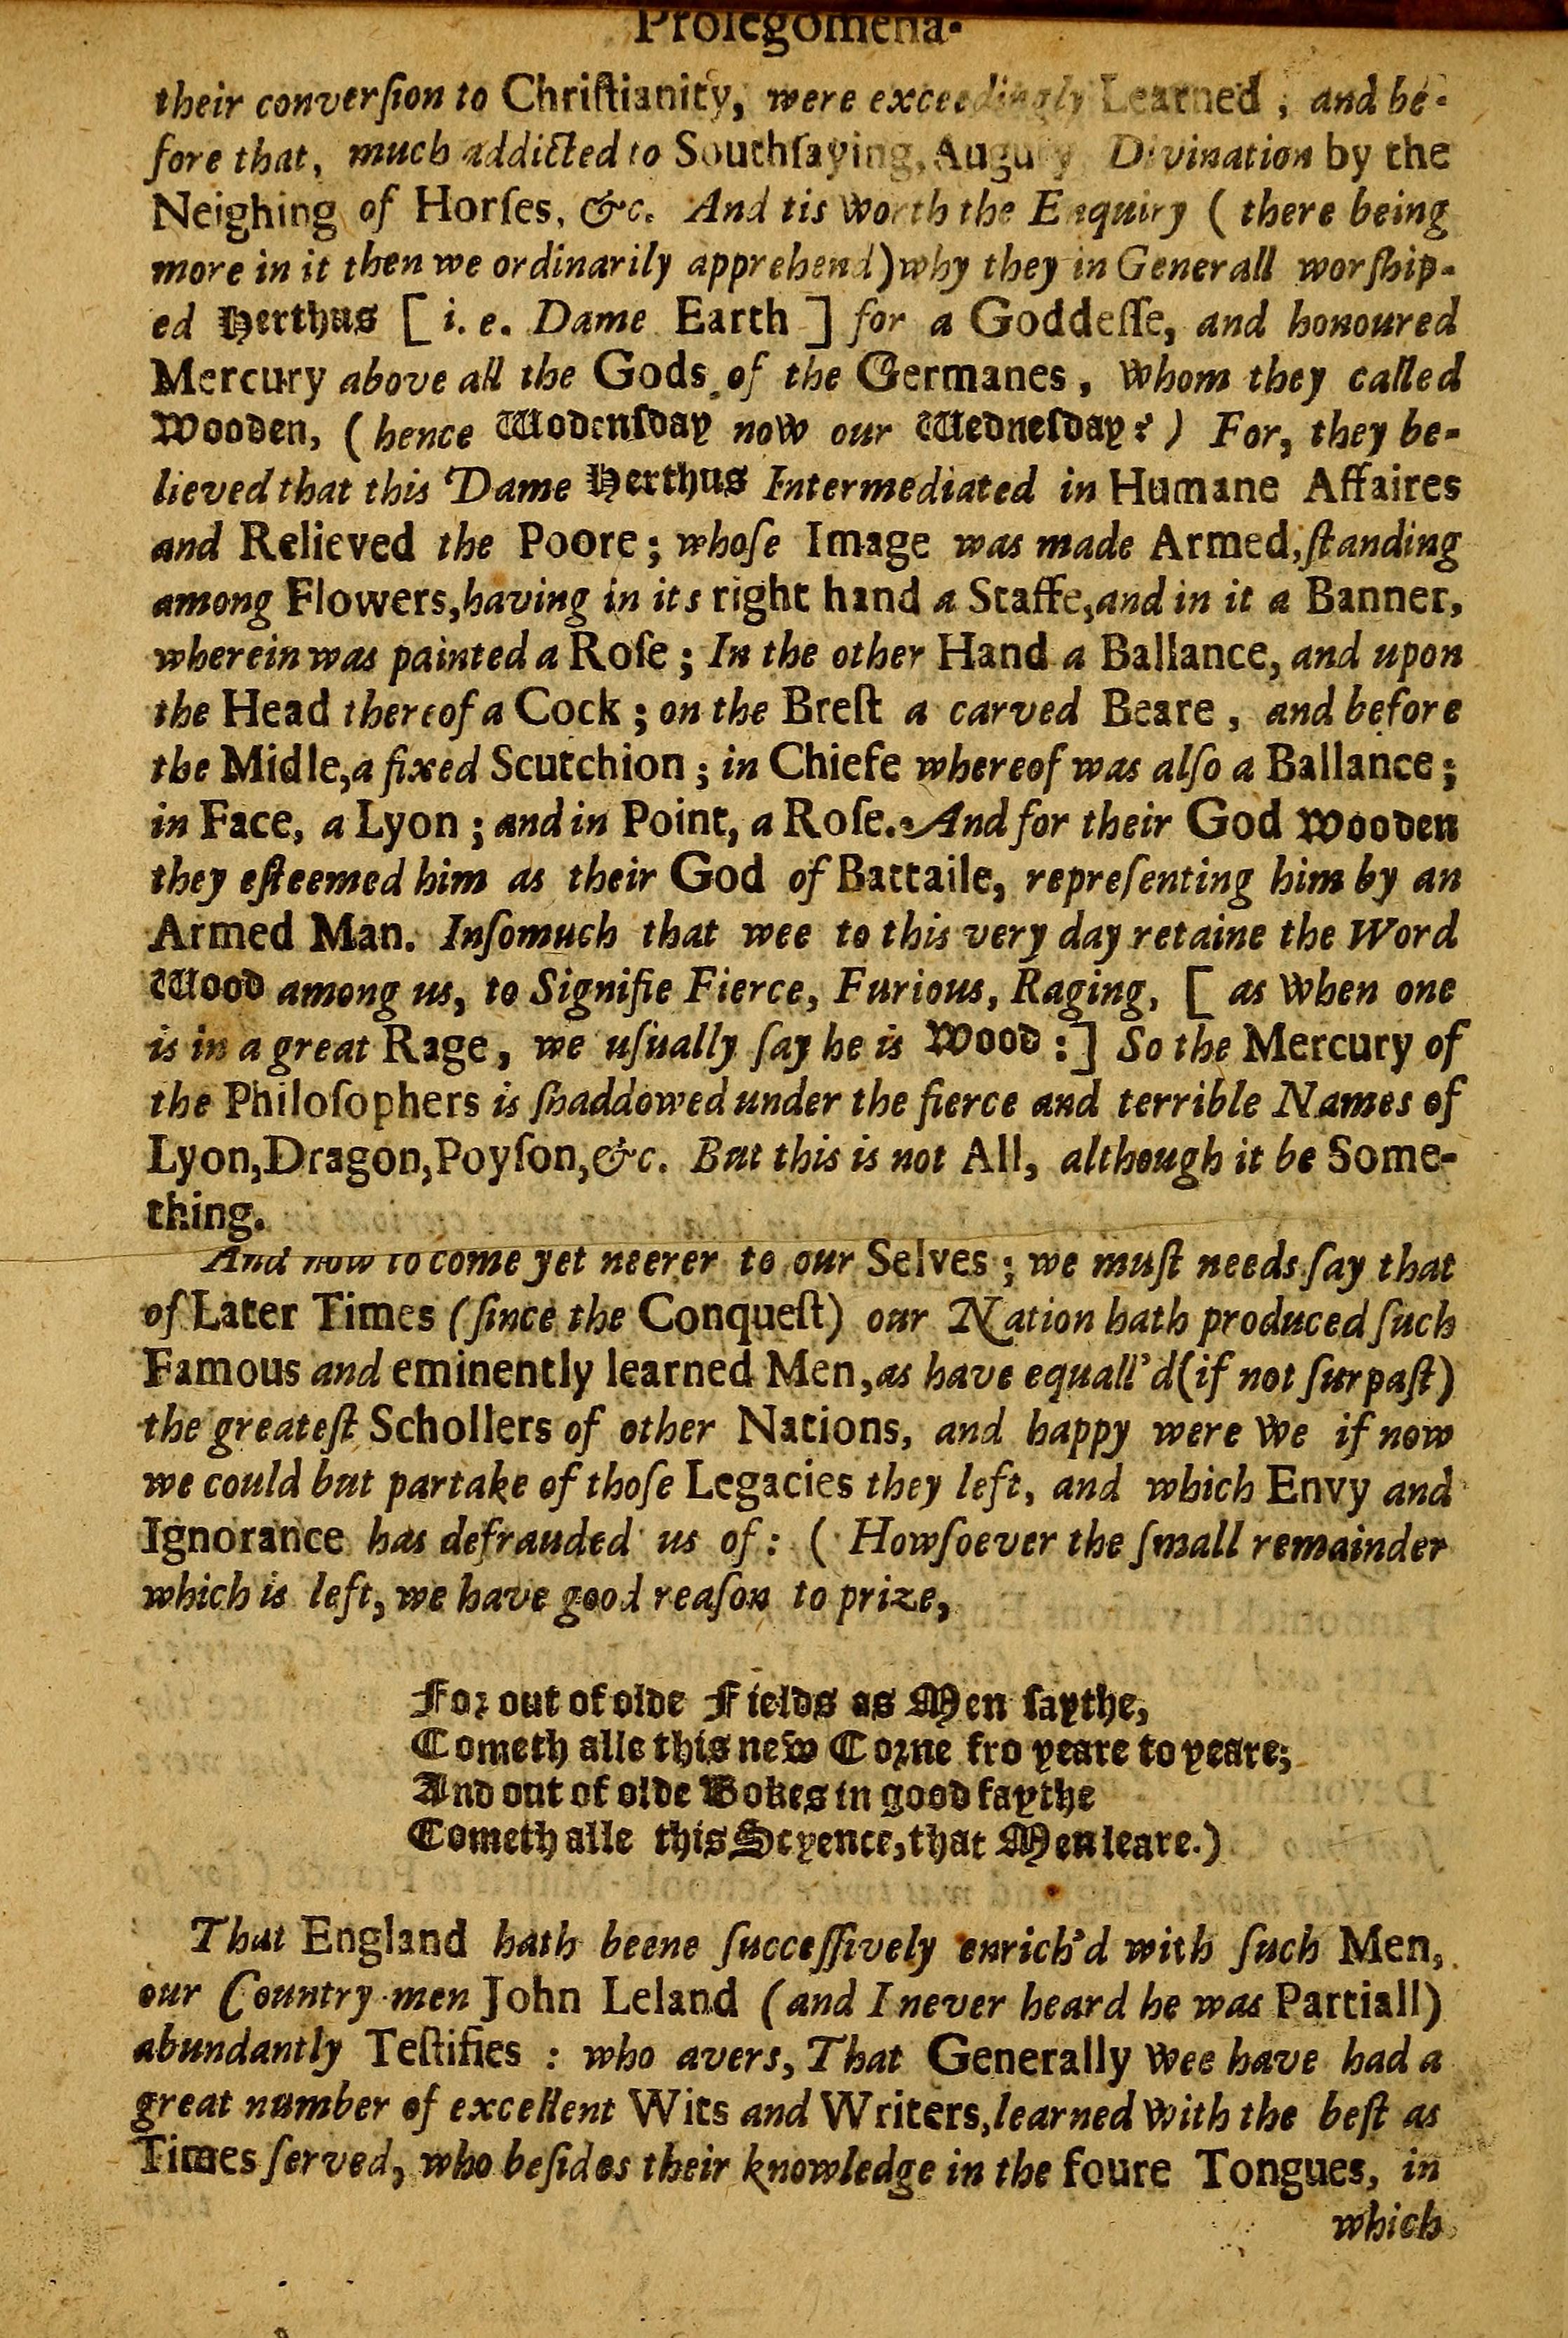 Prolegomena.
their converſion to Chriſtianity, were exceedingly Learned, and be-
fore that, much addicted to Southſaying, Augury Divination by the
Neighing of Horſes, &c. And tis worth the Enquiry ( there being
more in it then we ordinarily apprehend) why they in Generall worſhip-
ed Herthus [ i. e. Dame Earth ] for a Goddeſſe, and honoured
Mercury above all the Gods of the Germanes, whom they called
Wooden, ( hence Wodenſday now our Wedneſday? ) For, they be-
lieved that this Dame Herthus Intermediated in Humane Affaires
and Relieved the Poore; whoſe Image was made Armed, ſtanding
among Flowers, having in its right hand a Staffe, and in it a Banner,
wherein was painted a Roſe; In the other Hand a Ballance, and upon
the Head thereof a Cock; on the Breſt a carved Beare, and before
the Midle, a fixed Scutchion; in Chiefe whereof was alſo a Ballance;
in Face, a Lyon; and in Point, a Roſe. And for their God Wooden
they eſteemed him as their God of Battaile, repreſenting him by an
Armed Man. Inſomuch that wee to this very day retaine the Word
Wood among us, to Signifie Fierce, Furious, Raging, [ as when one
is in a great Rage, we uſually ſay he is Wood:] So the Mercury of
the Philoſophers is ſhaddowed under the fierce and terrible Names of
Lyon, Dragon, Poyſon, &c. But this is not All, although it be Some-
thing.
And now to come yet neerer to our Selves; we muſt needs ſay that
of Later Times (ſince the Conqueſt) our Nation hath produced ſuch
Famous and eminently learned Men, as have equall'd (if not ſurpaſt)
the greateſt Schollers of other Nations, and happy were we if now
we could but partake of thoſe Legacies they left, and which Envy and
Ignorance has defrauded us of: ( Howſoever the ſmall remainder
which is left, we have good reaſon to prize,
For out of olde Fields as Men ſaythe,
Cometh alle this new Corne fro yeare to yeare;
And out of olde Bokes in good faythe
Cometh alle this Scyence, that Men leare.)
That England hath beene ſucceſſively enrich'd with ſuch Men,
our Country-men John Leland (and I never heard he was Partiall)
abundantly Teſtifies: who avers, That Generally wee have had a
great number of excellent Wits and Writers, learned with the beſt as
Times ſerved, who beſides their knowledge in the foure Tongues, in
which